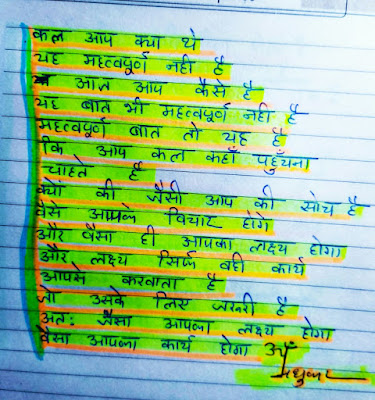 कल आप क्या थे
यह महत्वपूर्ण नही है
आज आप कैसे है
यह बात भी महत्वपूर्ण नही है
महत्वपूर्ण बात तो यह है
कि आप कल कहाँ पहुँचना
चाहते है
क्यों की जैसी आप की सोच है
वैसे आपके विचार होगे
और वैसा ही आपका लक्ष्य होगा
और लक्ष्य सिर्फ वही कार्य
आपसे करवाता है
जो उसके लिए जरुरी है
अतः जैसा आपका लक्ष्य होगा
वैसा आपका कार्य होगा
मधुकर